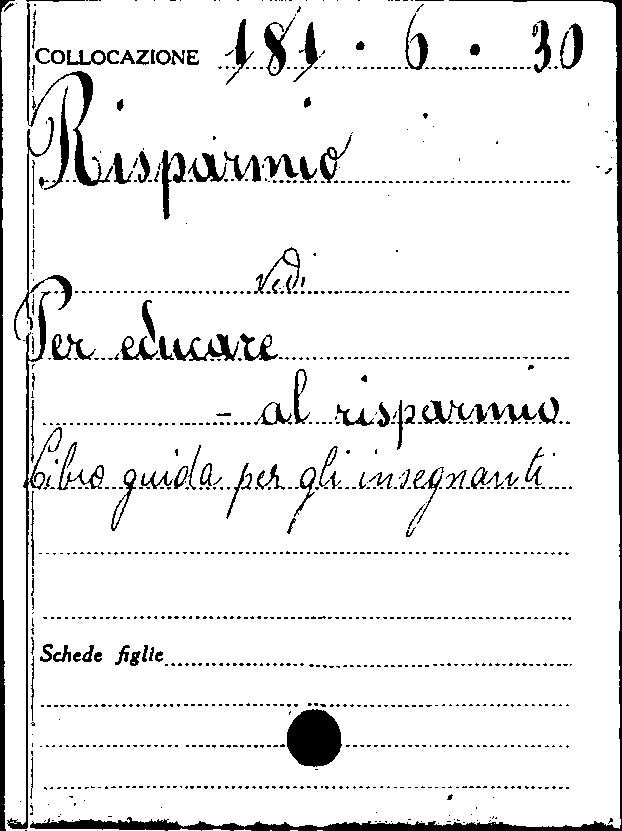 COLLOCAZIONE 181 . 6 . 30
Risparmio
vedi
Per educare
- al risparmio
Libro guida per gli insegnanti
Schede figlie